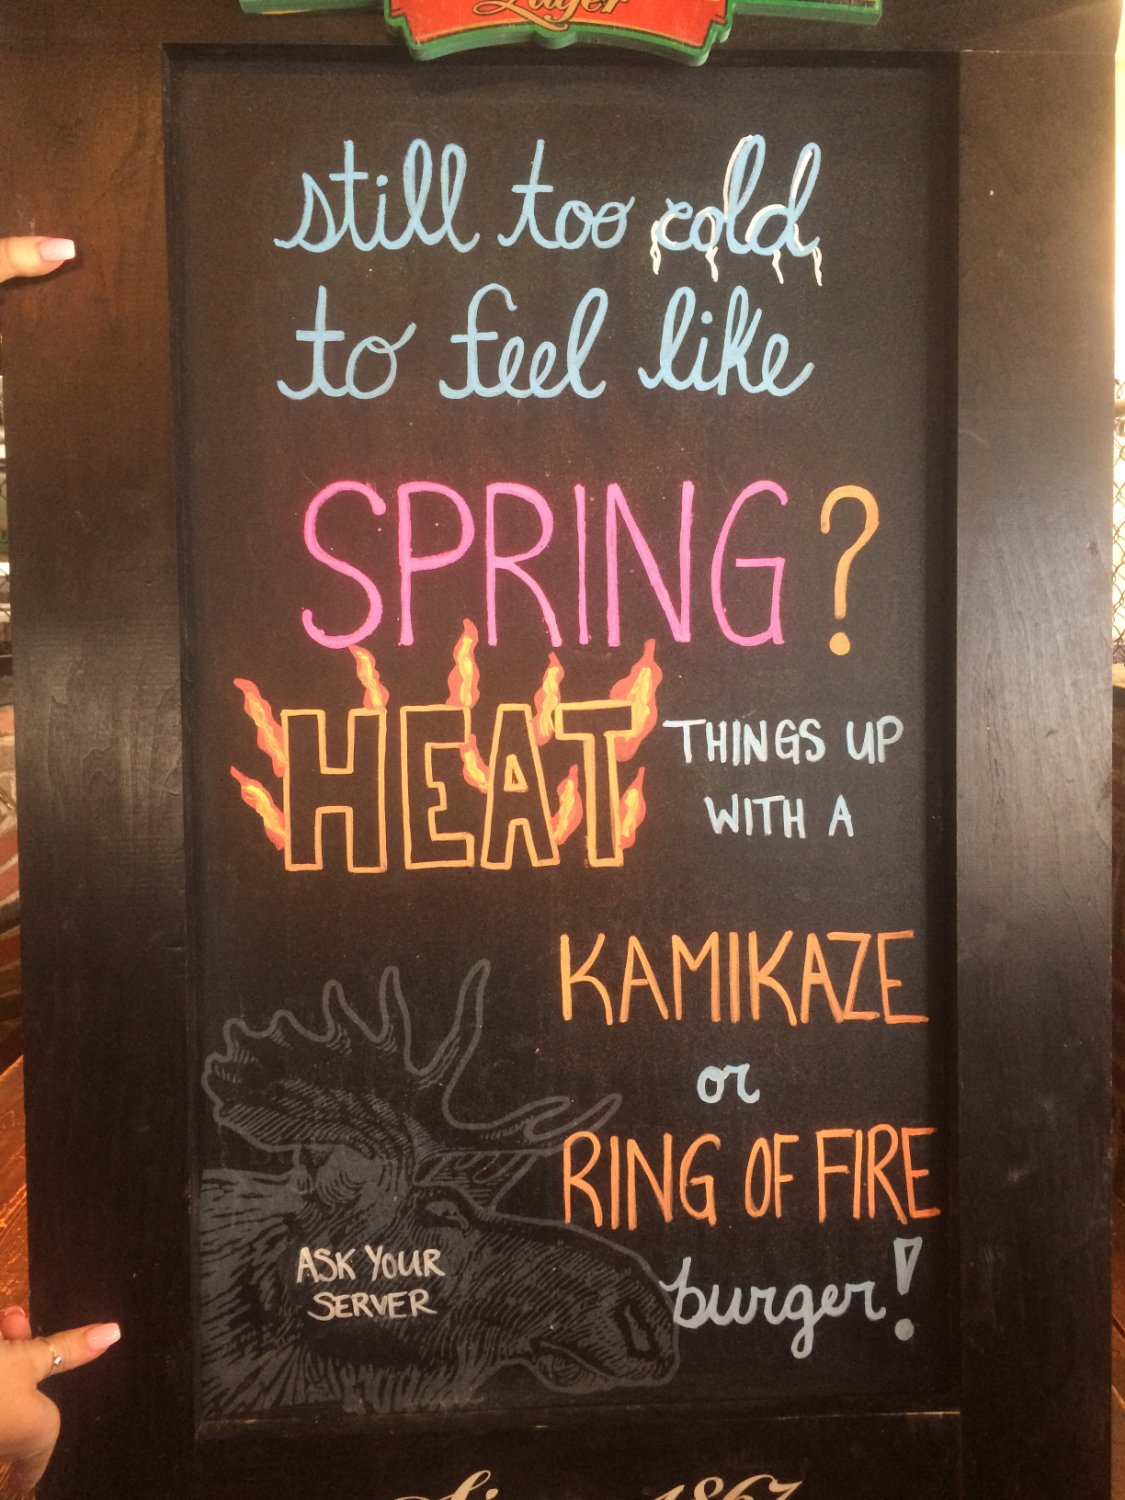 Lager
still too cold
to feel like
SPRING?
HEAT THINGS UP
WITH A
KAMIKAZE
or
RING OF FIRE
burger!
ASK YOUR
SERVER
Since 1867